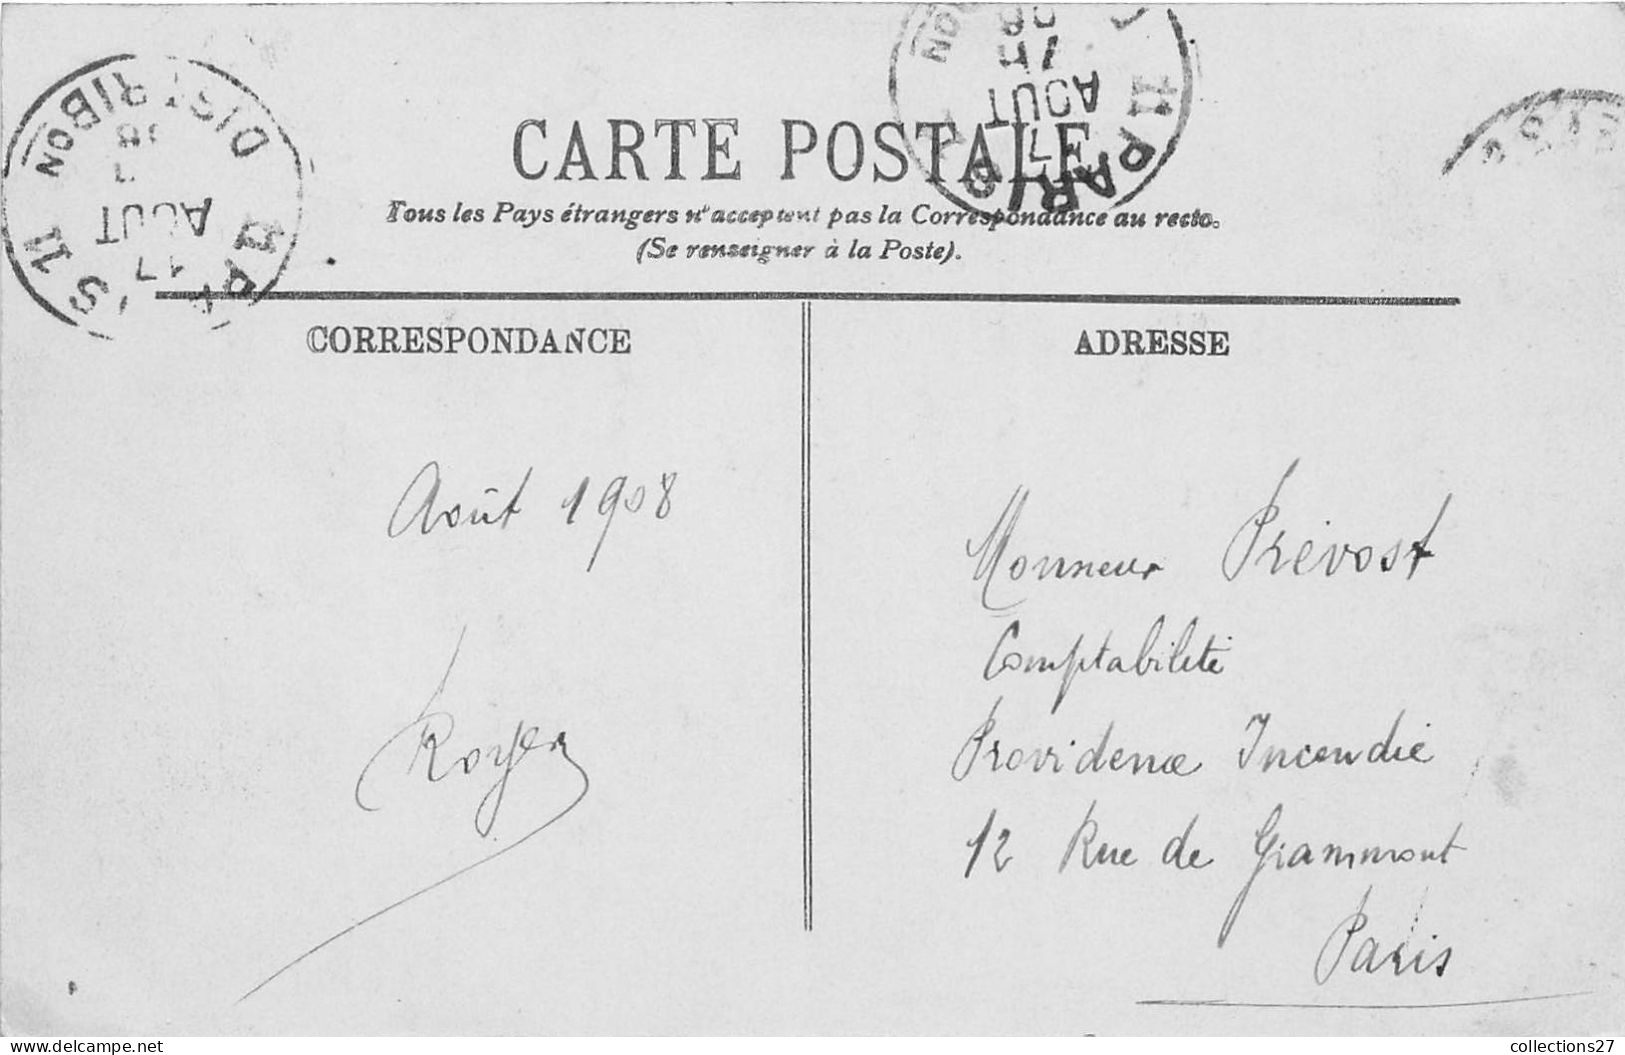 PARIS 11
DISTRIBON
17
AOUT
CARTE POSTALE
Tous les Pays étrangers n'acceptent pas la Correspondance au recto.
(Se renseigner à la Poste).
CORRESPONDANCE
ADRESSE
Août 1908
Royer
Monsieur Prévost
Comptabilité
Providence Incendie
12 Rue de Grammont
Paris
www.delcampe.net
collections27